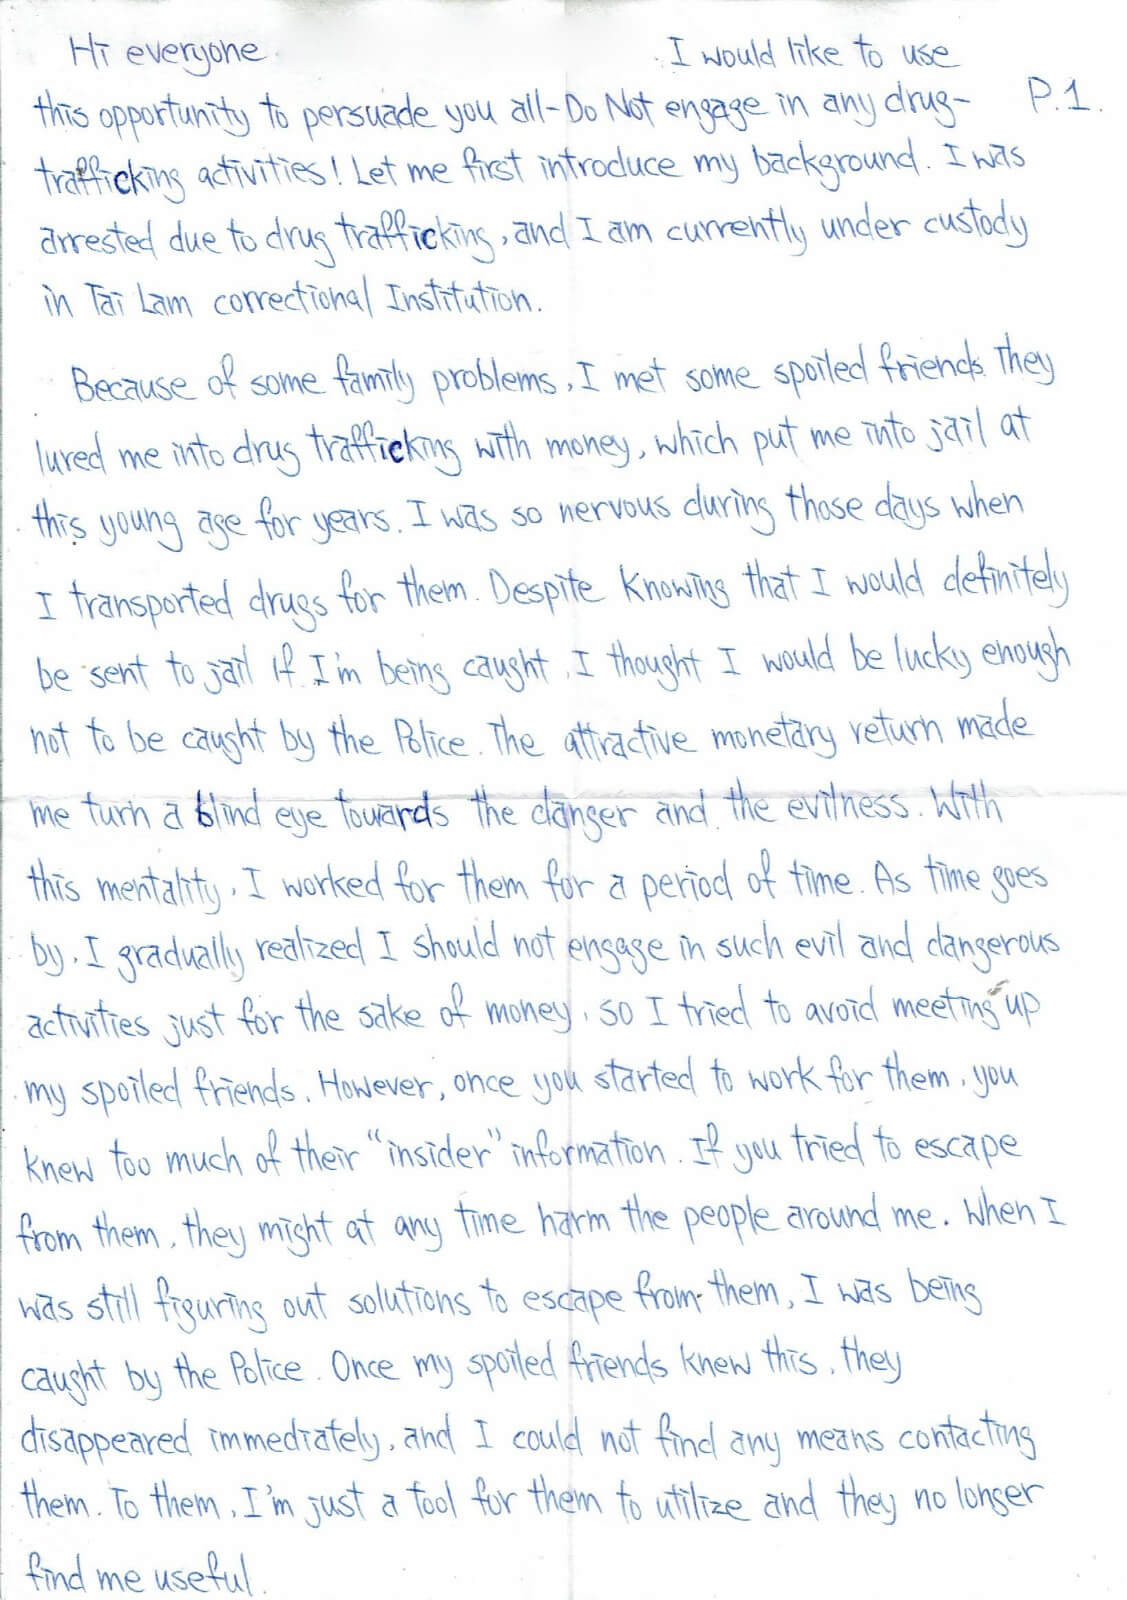 Hi everyone. I would like to use
this opportunity to persuade you all-Do Not engage in any drug-
P.1.
trafficking activities! Let me first introduce my background. I was
arrested due to drug trafficking, and I am currently under custody
in Tai Lam correctional Institution.
Because of some family problems, I met some spoiled friends. They
lured me into drug trafficking with money, which put me into jail at
this young age for years. I was so nervous during those days when
I transported drugs for them. Despite knowing that I would definitely
be sent to jail if I'm being caught, I thought I would be lucky enough
not to be caught by the Police. The attractive monetary return made
me turn a blind eye towards the danger and the evilness. With
this mentality, I worked for them for a period of time. As time goes
by, I gradually realized I should not engage in such evil and dangerous
activities just for the sake of money, so I tried to avoid meeting up
my spoiled friends. However, once you started to work for them, you
knew too much of their "insider" information. If you tried to escape
from them, they might at any time harm the people around me. When I
was still figuring out solutions to escape from them, I was being
caught by the Police. Once my spoiled friends knew this, they
disappeared immediately, and I could not find any means contacting
them. To them, I'm just a tool for them to utilize and they no longer
find me useful.